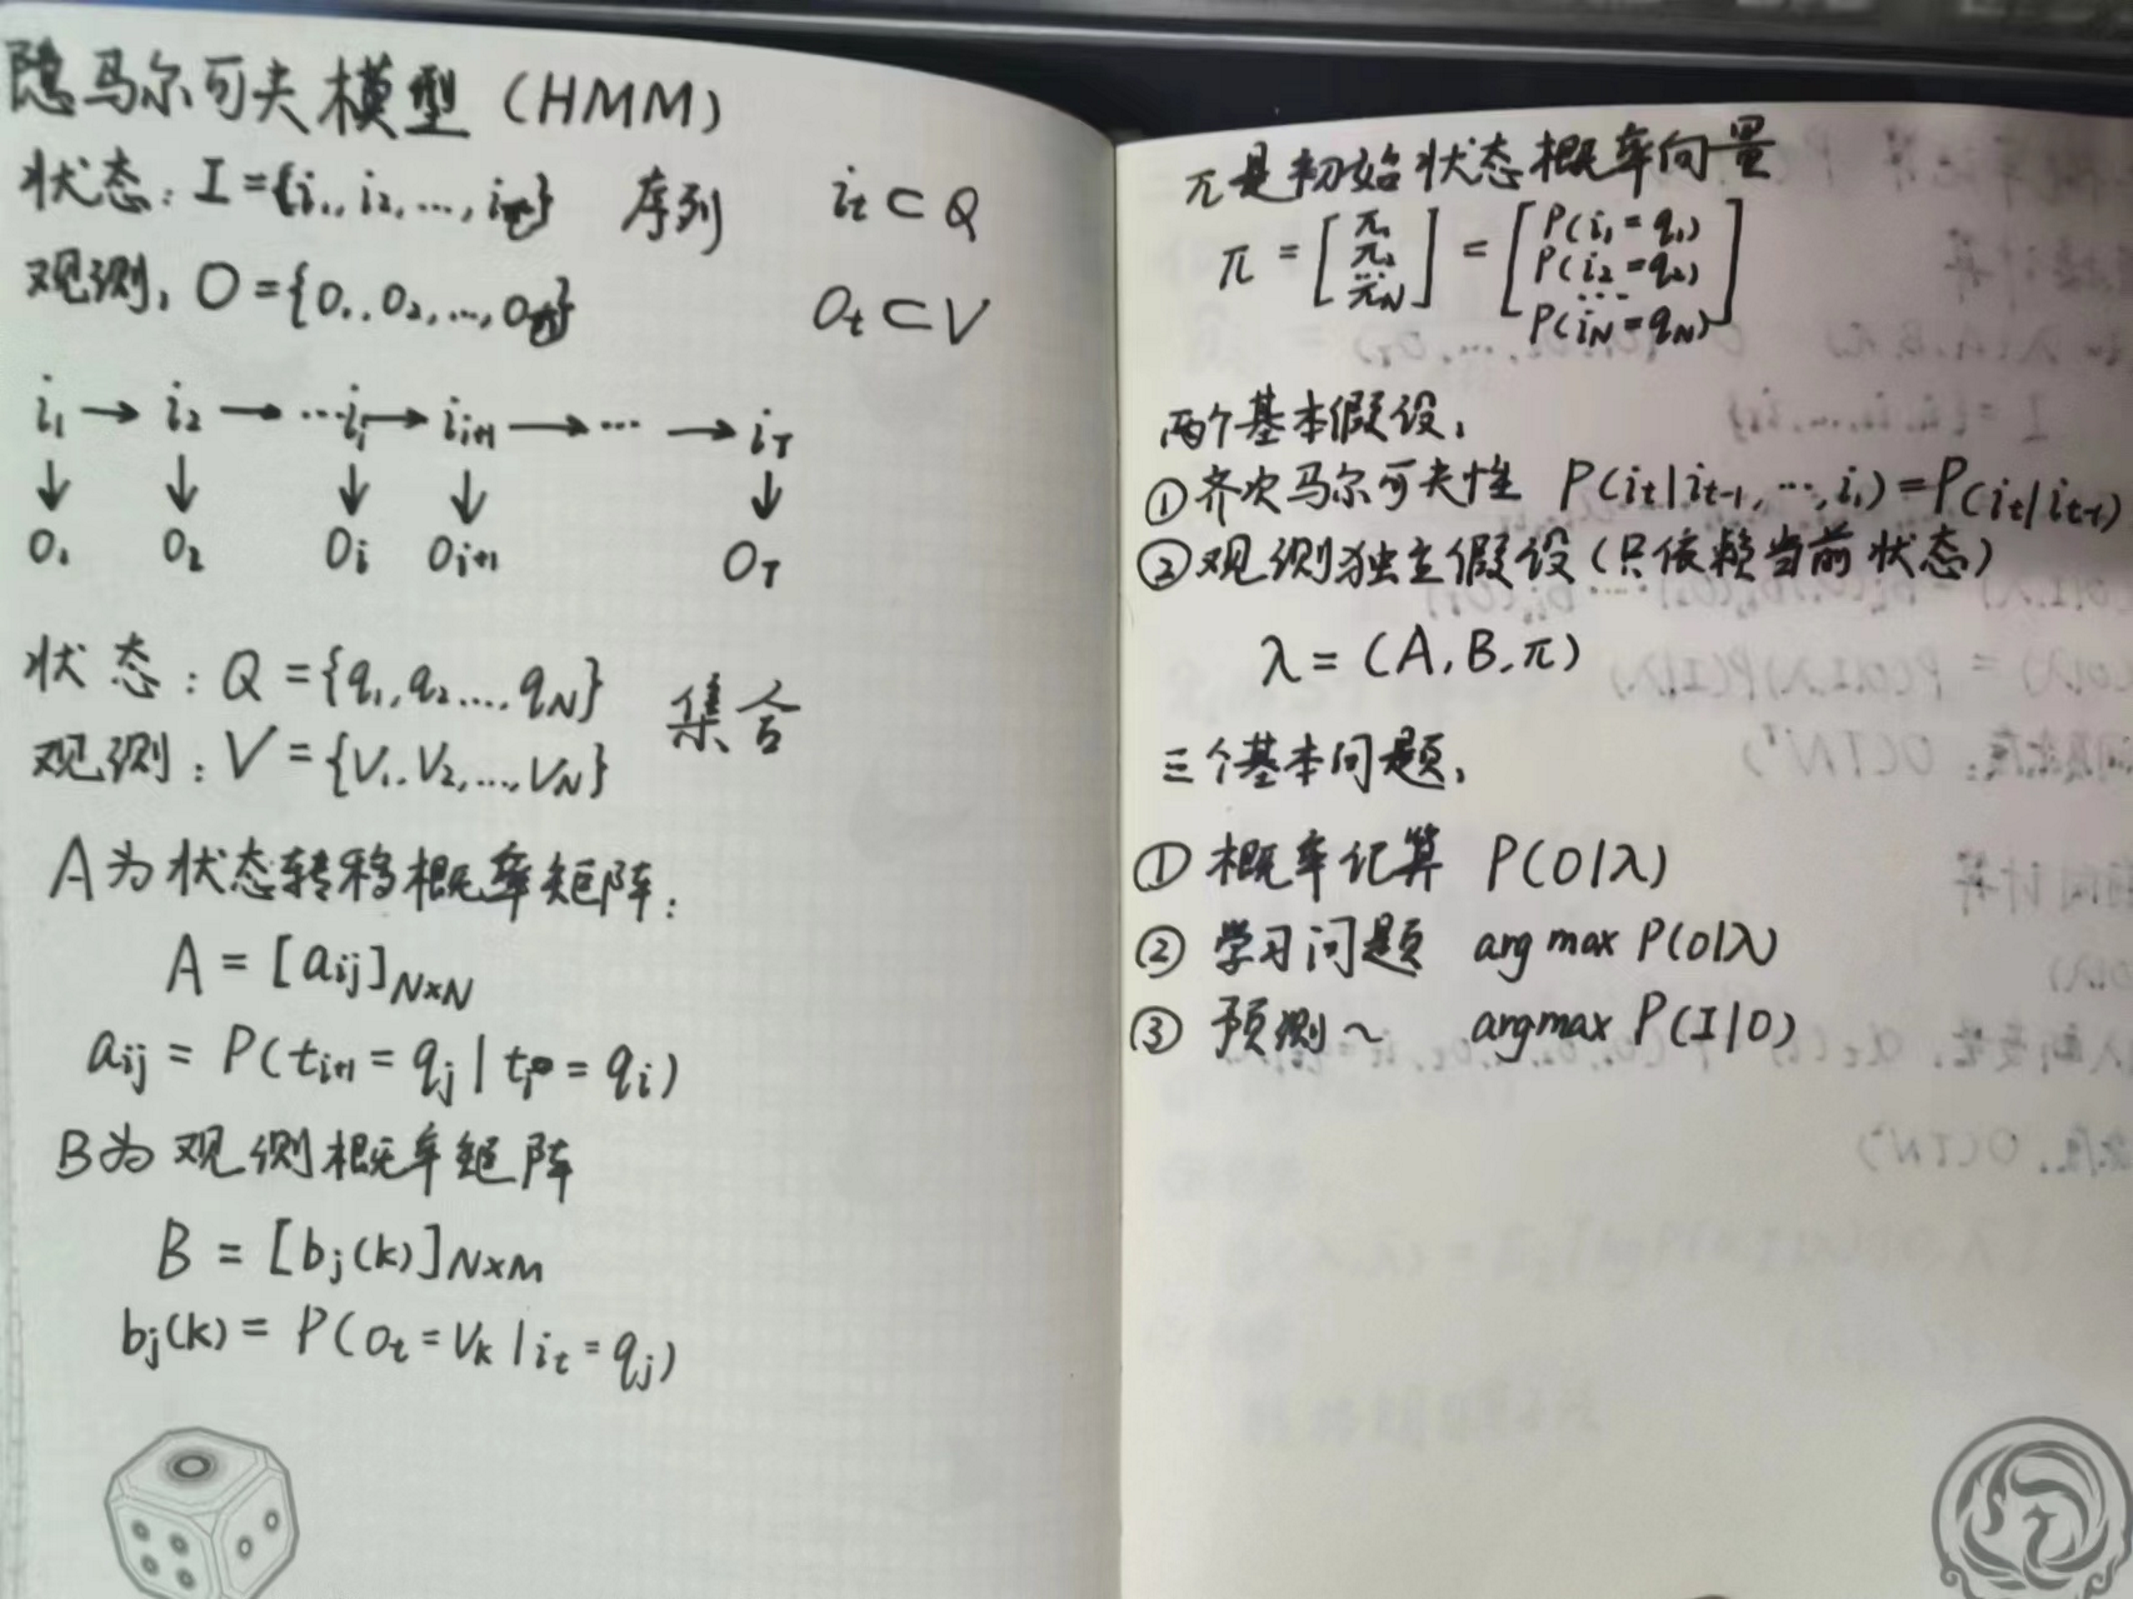 隐马尔可夫模型(HMM)
状态: I={i₁, i₂, ..., i_T} 序列 i_t ⊂ Q
观测, O={o₁, o₂, ..., o_T} o_t ⊂ V
i₁ → i₂ → ...i_i → i_{i+1} → ... → i_T
↓ ↓ ↓ ↓ ↓
o₁ o₂ o_i o_{i+1} o_T
状态: Q={q₁, q₂..., q_N} 集合
观测: V={V₁, V₂, ..., V_N}
A为状态转移概率矩阵:
A = [a_{ij}]_{N×N}
a_{ij} = P(t_{i+1} = q_j | t_i = q_i)
B为观测概率矩阵
B = [b_j(k)]_{N×M}
b_j(k) = P(o_t = V_k | i_t = q_j)
π是初始状态概率向量
π = [π₁ π₂ ... π_N] = [P(i₁=q₁) P(i₂=q₂) ... P(i_N=q_N)]
两个基本假设,
①齐次马尔可夫性 P(i_t|i_{t-1}, ..., i₁)=P(i_t|i_{t-1})
②观测独立假设(只依赖当前状态)
λ = (A, B, π)
三个基本问题,
① 概率计算 P(O|λ)
② 学习问题 arg max P(O|λ)
③ 预测~ argmax P(I|O)